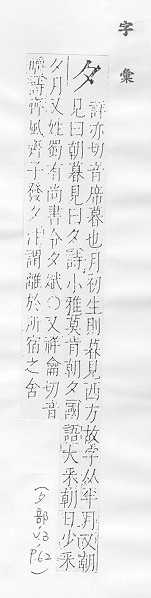 字彙
夕
詳亦切音席暮也月初生則暮見西方故字从半月又朝
見曰朝暮見曰夕詩小雅莫肯朝夕國語大采朝日少采
夕月又姓蜀有尚書令夕斌○又祥龠切音
詩齊風齊子發夕注謂離於所宿之舍
(夕部 v.3 p.62)